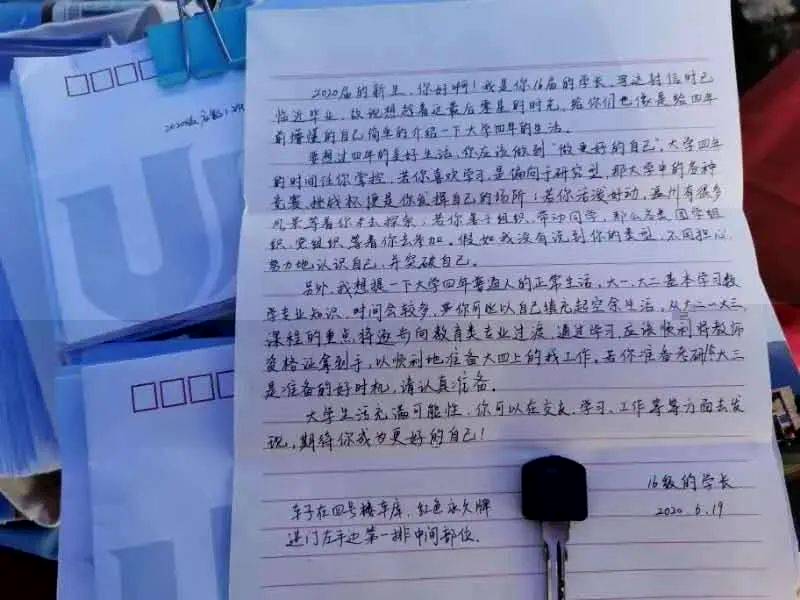 2020届的新生，你好啊！我是你16届的学长，写这封信时已
临近毕业，故我想趁着这最后零星的时光，给你们也像是给四年
前懵懂的自己简单的介绍一下大学四年的生活。
要想过四年的美好生活，你应该做到“做更好的自己”，大学四年
的时间任你掌控，若你喜欢学习，是偏向于研究型，那大学中的各种
竞赛、挑战杯便是你发挥自己的场所；若你活泼好动，温州有很多
风景等着你去探索；若你善于组织、带动同学，那么各类团学组
织、党组织等着你去参加。假如我没有说到你的类型，不用担心，
努力地认识自己，并突破自己。
另外，我想提一下大学四年普通人的正常生活，大一、大二基本学习数
学专业知识，时间会较多，你可以自己填充起空余生活，从大三
课程的重点将逐步向教育类专业过渡，通过学习，应该顺利将教师
资格证拿到手，以顺利地准备大四上的找工作。若你准备考研，大三
是准备的好时机，请认真准备。
大学生活充满可能性，你可以在交友、学习、工作等等方面去发
现，期待你成为更好的自己！
16级的学长
2020.6.19
车子在四号楼车库，红色永久牌
进门左手边第一排中间部位.
U